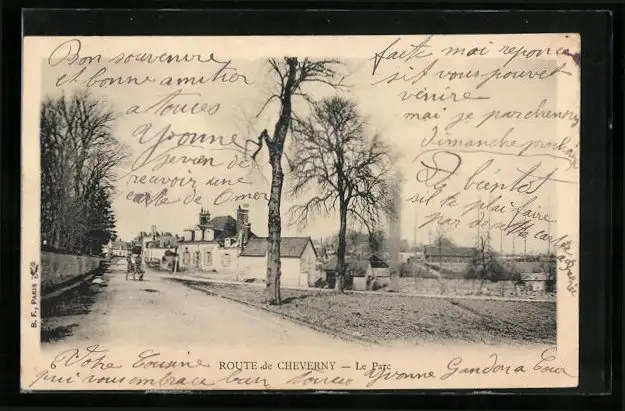 Bon souvenire
et bonne amitier
a toutes
Yvonne
je vien de
recevoir une
carte de Omer
faite moi reponce
si vous pouvet
venire
moi je parcheny
dimanche prochain
a Bientot
si te plai faire
par don
carte a
B. F., PARIS
ROUTE de CHEVERNY — Le Parc
Votre Cousine
qui vous embrace bien toutes Yvonne Gandon a Cour